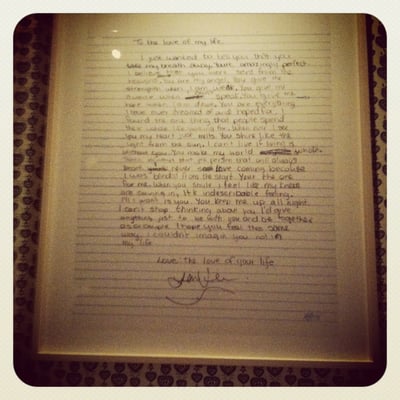 To the love of my life.
I just wanted to tell you that you
take my breath away. You're amazingly perfect.
I believe that you were sent from the
heavens. You are my angel. You give me
strength when I am weak. You give me
a voice when speak. You give me
hope when I am down. You are everything
I have ever dreamed of and hoped for. I
found the one thing that people spend
their whole life looking for. When ever I see
you my heart just melts. You shine like the
light from the sun. I can't live if living is
without you. You make my world whole.
that person that will always
love coming because
I was blinded from the start. Your the one
for me. When you smile I feel like my knees
are caving in, it's indescribable feeling.
All I want is you. You keep me up all night.
I can't stop thinking about you. I'd give
anything just to be with you and be together
as a couple. I hope you feel the same
way. I couldn't imagine you not in
my life.
Love, the love of your life